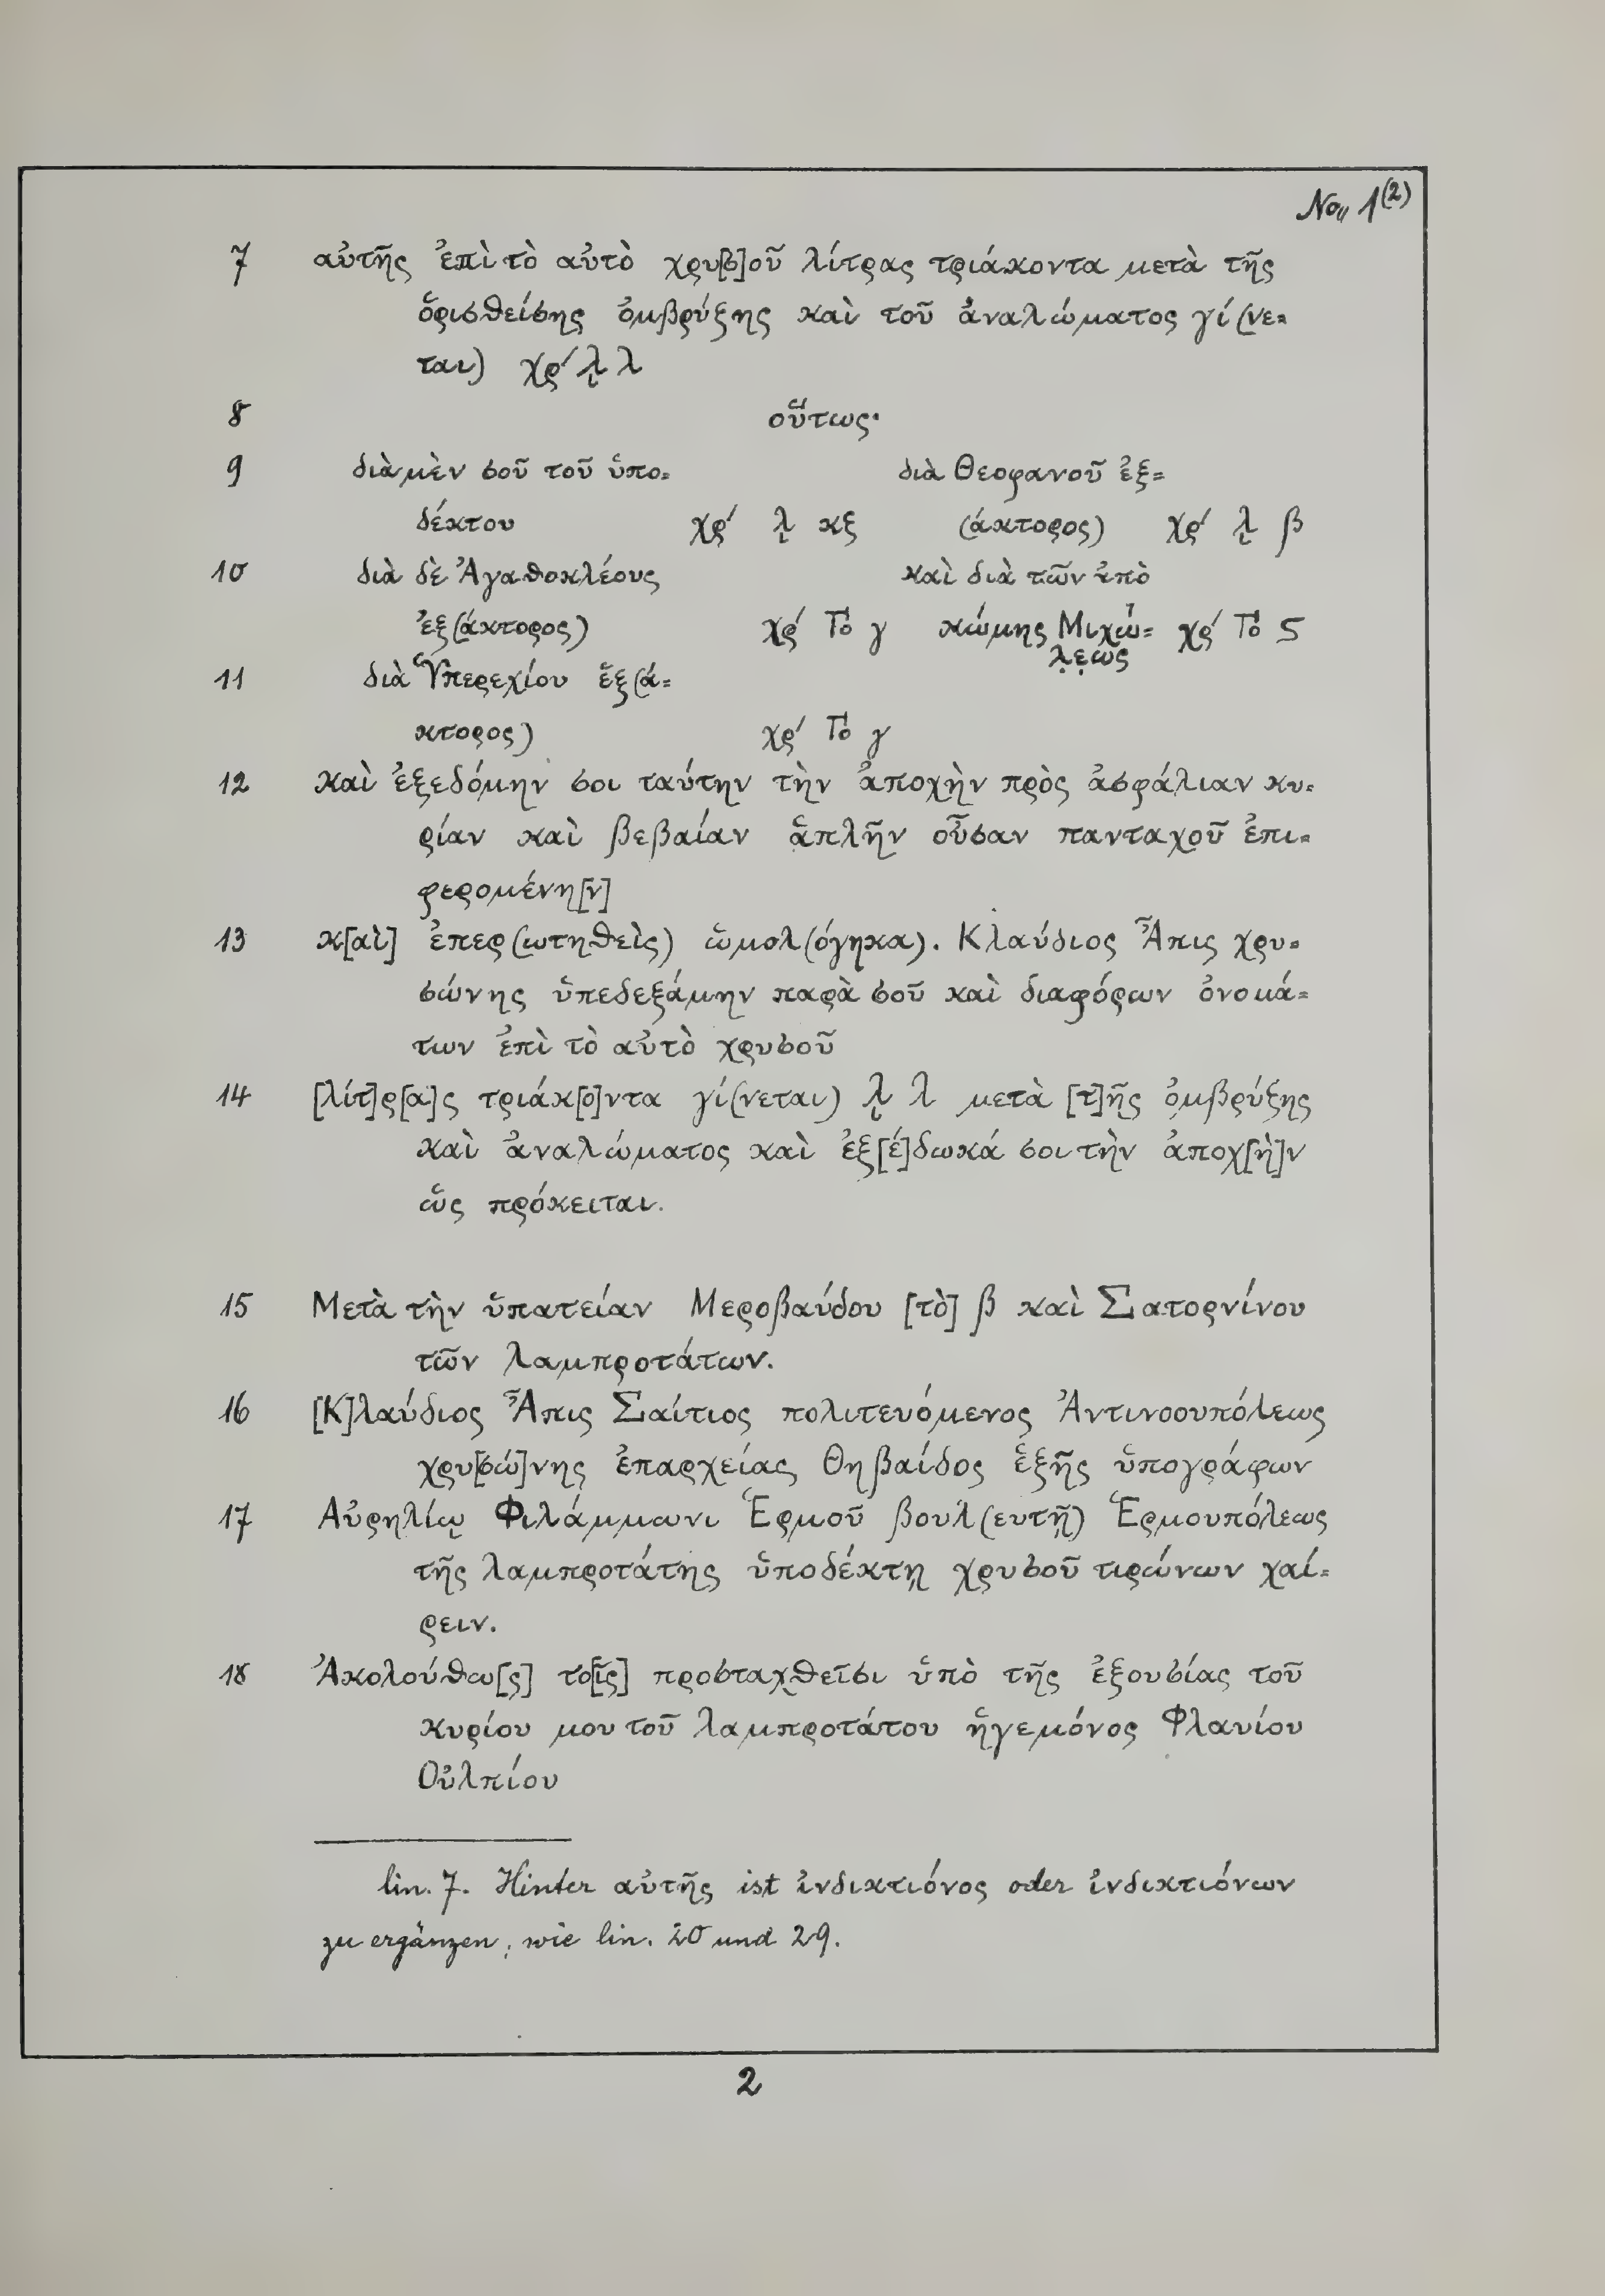 No. 1(2)
7 αὐτῆς ἐπὶ τὸ αὐτὸ χρυ[σ]οῦ λίτρας τριάκοντα μετὰ τῆς
ὁρισθείσης ὀμβρύξης καὶ τοῦ ἀναλώματος γί(νε=
ται) χρ´ λι λ
8 οὕτως·
9 διὰ μὲν σοῦ τοῦ ὑπο= διὰ Θεοφανοῦ ἐξ=
δέκτου χρ´ λι κξ (άκτορος) χρ´ λι β
10 διὰ δὲ Ἀγαθοκλέους καὶ διὰ τῶν ἀπὸ
ἐξ(άκτορος) χρ´ Γό γ κώμης Μιχώ= χρ´ Γό ς
λ̣ε̣ως
11 διὰ Ὑπερεχίου ἐξ(ά=
κτορος) χρ´ Γό γ
12 καὶ ἐξεδόμην σοι ταύτην τὴν ἀποχὴν πρὸς ἀσφάλιαν κυ=
ρίαν καὶ βεβαίαν ἁπλῆν οὖσαν πανταχοῦ ἐπι=
φερομένη[ν]
13 κ[αὶ] ἐπερ(ωτηθεὶς) ὡμολ(όγηκα). Κλαύδιος Ἆπις χρυ=
σώνης ὑπεδεξάμην παρὰ σοῦ καὶ διαφόρων ὀνομά=
των ἐπὶ τὸ αὐτὸ χρυσοῦ
14 [λίτ]ρ[α]ς τριάκ[ο]ντα γί(νεται) λι λ μετὰ [τ]ῆς ὀμβρύξης
καὶ ἀναλώματος καὶ ἐξ[έ]δωκά σοι τὴν ἀποχ[ὴ]ν
ὡς πρόκειται.
15 Μετὰ τὴν ὑπατείαν Μεροβαύδου [τὸ] β καὶ Σατορνίνου
τῶν λαμπροτάτων.
16 [Κ]λαύδιος Ἆπις Σαίτιος πολιτευόμενος Ἀντινοουπόλεως
χρυ[σώ]νης ἐπαρχείας Θηβαίδος ἑξῆς ὑπογράφων
17 Αὐρηλίῳ Φιλάμμωνι Ἑρμοῦ βουλ(ευτῇ) Ἑρμουπόλεως
τῆς λαμπροτάτης ὑποδέκτῃ χρυσοῦ τιρώνων χαί=
ρειν.
18 Ἀκολούθω[ς] το[ῖς] προσταχ̣θεῖσι ὑπὸ τῆς ἐξουσίας τοῦ
κυρίου μου τοῦ λαμπροτάτου ἡγεμόνος Φλαυίου
Οὐλπίου
lin. 7. Hinter αὐτῆς ist ἰνδικτιόνος oder ἰνδικτιόνων
zu ergänzen, wie lin. 20 und 29.
2